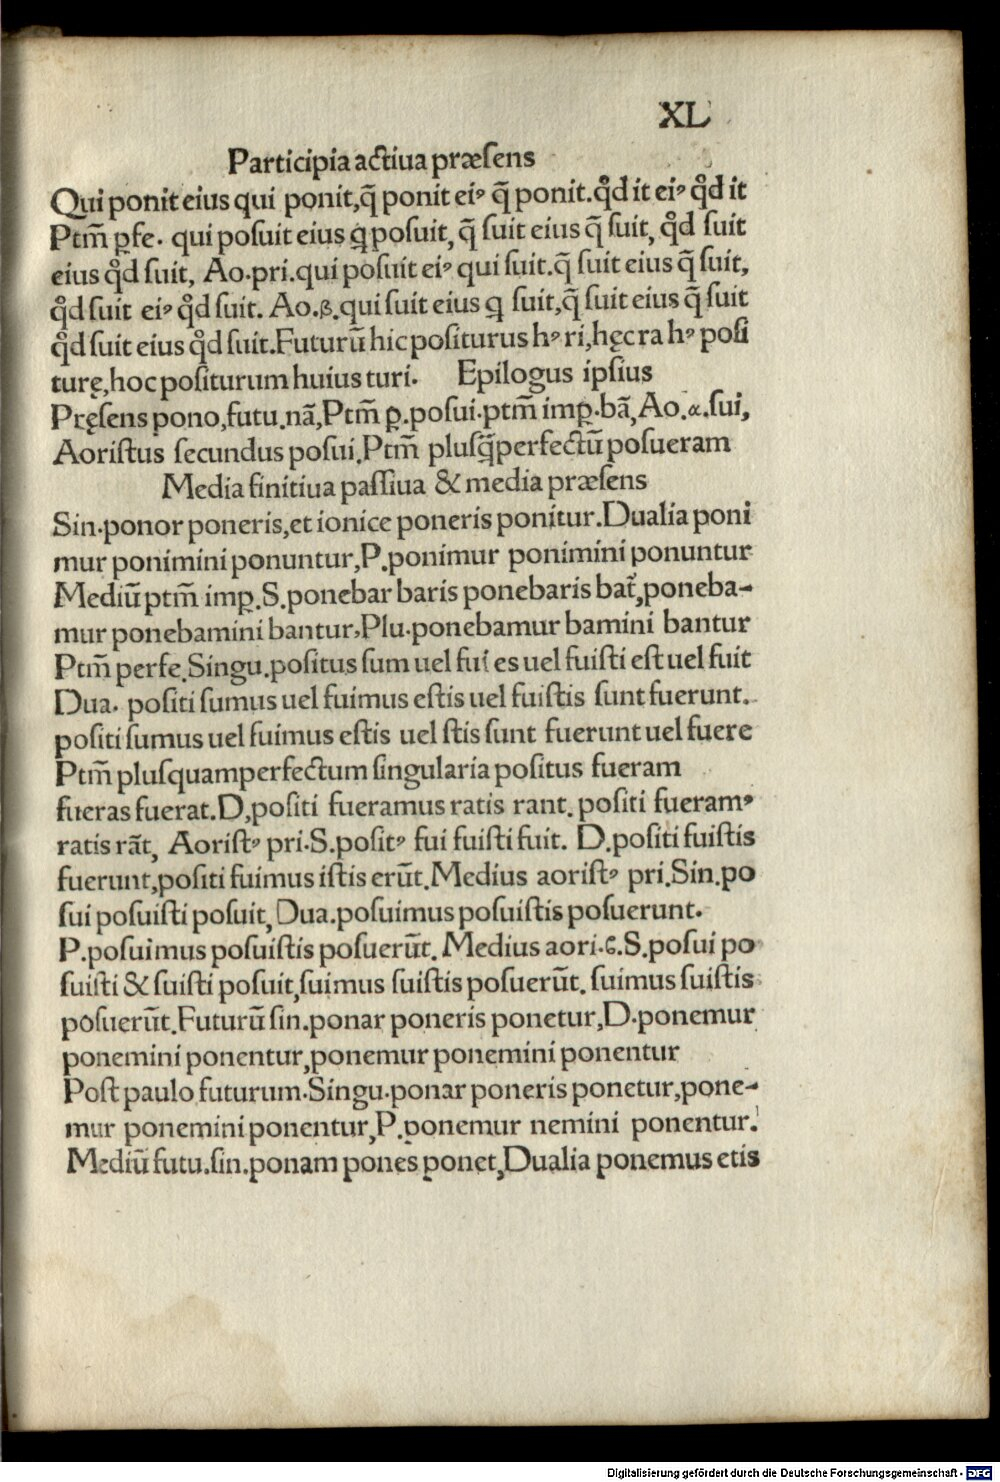 XL
Participia actiua præſens
Qui ponit eius qui ponit,q̄ ponit eiꝰ q̄ ponit.qͦd it eiꝰ qͦd it
Ptm̄ ꝑfe. qui poſuit eius ꝗ poſuit, q̄ ſuit eius q̄ ſuit, qͦd ſuit
eius qͦd ſuit, Ao.pri.qui poſuit eiꝰ qui ſuit.q̄ ſuit eius q̄ ſuit,
qͦd ſuit eiꝰ qͦd ſuit. Ao.β.qui ſuit eius ꝗ ſuit,q̄ ſuit eius q̄ ſuit
qͦd ſuit eius qͦd ſuit.Futurū hic poſiturus hꝰ ri,hęc ra hꝰ poſi
turę,hoc poſiturum huius turi. Epilogus ipſius
Pręſens pono,futu.nā,Ptm̄ ꝑ.poſui.ptm̄ imꝑ.bā,Ao.α.ſui,
Aoriſtus ſecundus poſui.Ptm̄ pluſq̄perfectū poſueram
Media finitiua paſſiua & media præſens
Sin.ponor poneris,et ionice poneris ponitur.Dualia poni
mur ponimini ponuntur,P.ponimur ponimini ponuntur
Mediū ptm̄ imꝑ.S.ponebar baris ponebaris bat᷑,poneba-
mur ponebamini bantur,Plu.ponebamur bamini bantur
Ptm̄ perfe.Singu.poſitus ſum uel fui es uel fuiſti eſt uel fuit
Dua. poſiti ſumus uel fuimus eſtis uel fuiſtis ſunt fuerunt.
poſiti ſumus uel fuimus eſtis uel ſtis ſunt fuerunt uel fuere
Ptm̄ pluſquamperfectum ſingularia poſitus fueram
fueras fuerat.D,poſiti fueramus ratis rant. poſiti fueramꝰ
ratis rāt, Aoriſtꝰ pri.S.poſitꝰ fui fuiſti fuit. D.poſiti fuiſtis
fuerunt,poſiti fuimus iſtis erūt.Medius aoriſtꝰ pri.Sin.po
ſui poſuiſti poſuit,Dua.poſuimus poſuiſtis poſuerunt.
P.poſuimus poſuiſtis poſuerūt. Medius aori.ϐ.S.poſui po
ſuiſti & ſuiſti poſuit,ſuimus ſuiſtis poſuerūt. ſuimus ſuiſtis
poſuerūt.Futurū ſin.ponar poneris ponetur,D.ponemur
ponemini ponentur,ponemur ponemini ponentur
Poſt paulo futurum.Singu.ponar poneris ponetur,pone-
mur ponemini ponentur,P.ponemur nemini ponentur.
Mediū futu.ſin.ponam pones ponet,Dualia ponemus etis
Digitalisierung gefördert durch die Deutsche Forschungsgemeinschaft - DFG